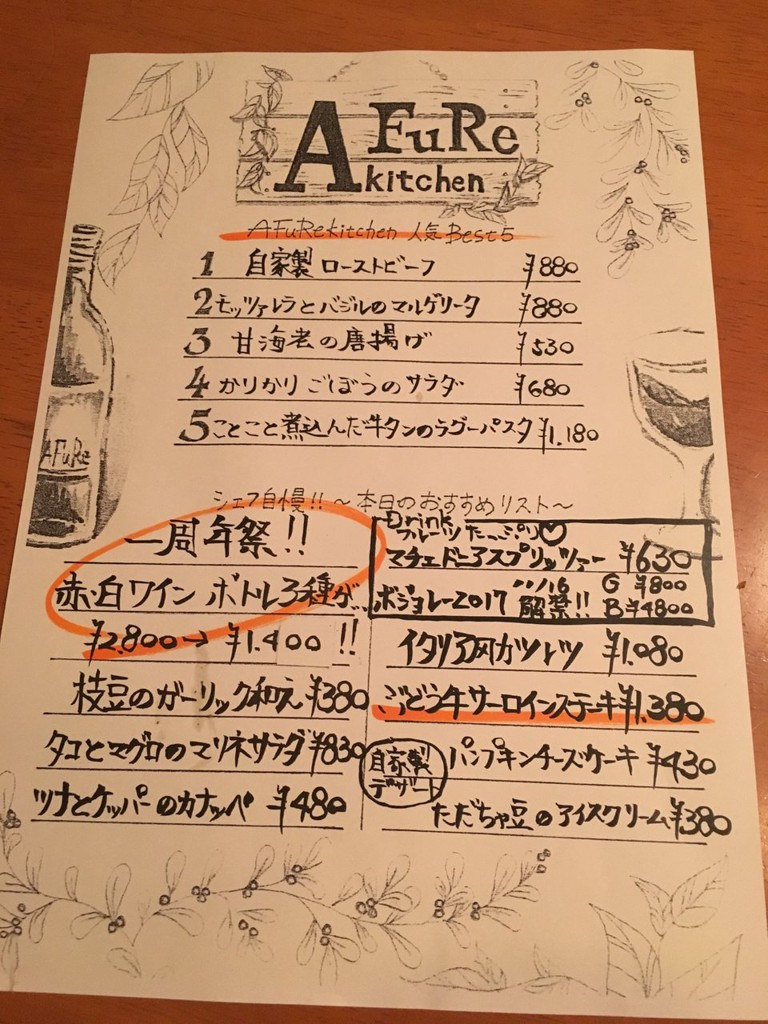 AFuRe
kitchen
AFuRekitchen 人気Best5
1 自家製ローストビーフ ¥880
2 モッツァレラとバジルのマルゲリータ ¥880
3 甘海老の唐揚げ ¥530
4 かりかりごぼうのサラダ ¥680
5 ことこと煮込んだ牛タンのラグーパスタ ¥1,180
AFuRe
シェフ自慢!! 〜本日のおすすめリスト〜
一周年祭!!
赤・白ワイン ボトル3種が…
¥2,800→¥1,400!!
枝豆のガーリック和え ¥380
タコとマグロのマリネサラダ ¥830
ツナとケッパーのカナッペ ¥480
Drink
フルーツたっぷり♡
マチェドニアスプリッツァー ¥630
ボジョレー2017 11/16 解禁!! G ¥800
B ¥4800
イタリア風カツレツ ¥1,080
ぶどう牛サーロインステーキ ¥1,380
自家製デザート
パンプキンチーズケーキ ¥430
ただちゃ豆のアイスクリーム ¥380